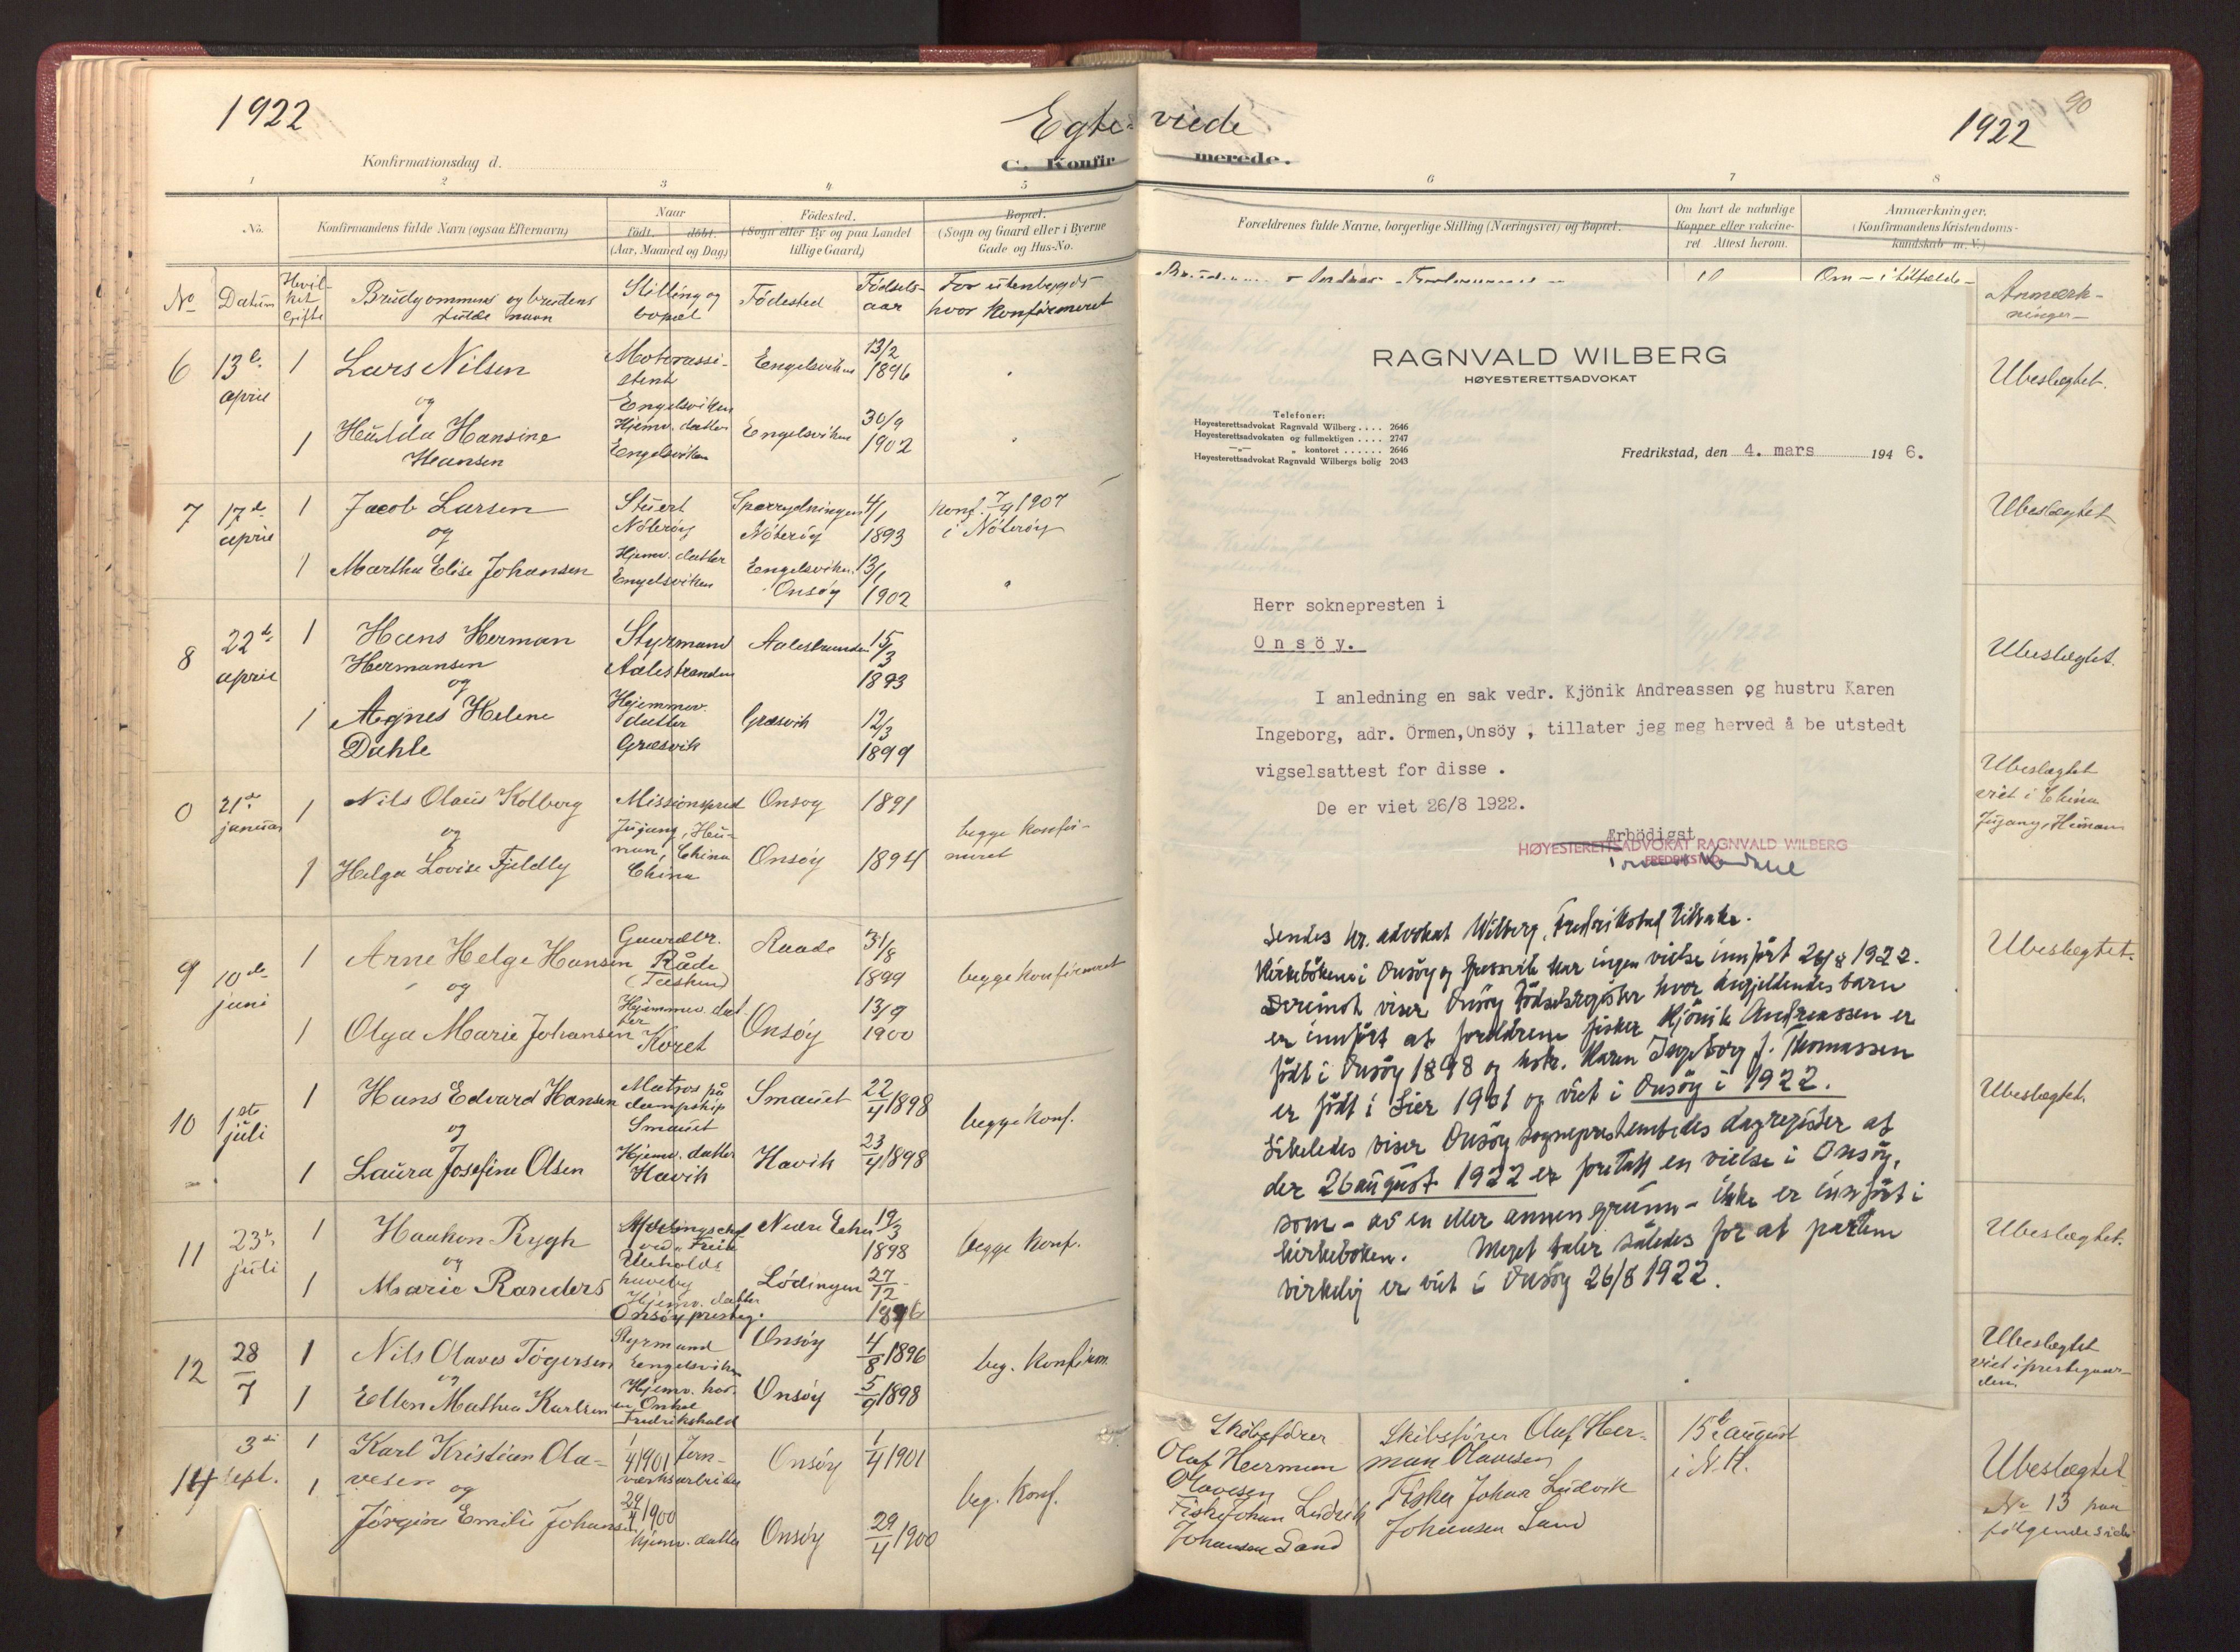 1922
Egte-viede
1922
90
Konfirmationsdag d.
C. Konfirmerede.
1 2 3 4 5 6 7 8
No. Konfirmandens fulde Navn (ogsaa Efternavn) Naar født. døbt. (Aar, Maaned og Dag) Fødested. (Sogn eller By og paa Landet tillige Gaard) Bopæl. (Sogn og Gaard eller i Byerne Gade og Hus-No.
Forældrenes fulde Navne, borgerlige Stilling (Næringsvei) og Bopæl. Om havt de naturlige Kopper eller vakcineret Attest herom. Anmærkninger. (Konfirmandens Kristendomskundskab m. V.)
No Datum Hvilket Gifte Brudgommens og brudens fulde navn Stilling og bopæl Fødested Fødselsaar For utenbygds hvor konfirmeret
Anmærkninger
6 13de april 1 Lars Nilsen Motorassistent Engelsviken Engelsviken 13/2 1896 Ubeslegtet.
og
1 Hulda Hansine Hansen Hjemv. datter Engelsviken Engelsviken 30/9 1902
7 17de april 1 Jacob Larsen Stuert Nøterøy Sparrydningen Nøterøy 4/1 1893 Konf. 7/9 1907 i Nøterøy Ubeslegtet
og
1 Martha Elise Johansen Hjemv. datter Engelsviken Engelsviken Onsøy 13/1 1902
8 22de april 1 Hans Herman Hermansen Styrmand Aalestranden Aalestranden 15/3 1893 Ubeslegtet.
og
1 Agnes Helene Dahle Hjemmev. datter Græsvik Græsvik 12/3 1899
0 21de januar 1 Nils Olaus Kolberg Missionspred Onsøy 1891 begge konfirmeret Ubeslegtet viet i China
og
1 Helga Lovise Fjeldly China Onsøy 1894
9 10de juni 1 Arne Helge Hansen Gaardbr. Råde Raade 31/8 1899 begge konfirmeret Ubeslegtet.
og
1 Olga Marie Johansen Hjemmev. datter Koret Onsøy 13/9 1900
10 1ste juli 1 Hans Edvard Hansen Matros på dampskip Smauet Smauet 22/4 1898 begge konf. Ubeslegtet.
og
1 Laura Josefine Olsen Hjemv. datter Havik Havik 23/4 1898
11 23de juli 1 Haakon Rygh Nedre Eker 19/3 1898 begge konf. Ubeslegtet.
og
1 Marie Randers Hjemv. datter Onsøy presteg. Lödingen 27/12 1896
12 28/7 1 Nils Olaves Tøgersen Styrmand Engelsviken Onsøy 4/8 1896 beg. konfirm. Ubeslegtet viet i prestegaarden
og
1 Ellen Mathea Karlsen Hjemv. hos en Onkel Fredrikshald Onsøy 5/9 1898
14 3di sept. 1 Karl Kristian Olavesen 1/4 1901 Jernverksarbeider Onsøy 1/4 1901 beg. konf.
og
1 Jörgine Emilie Johansen 29/4 1900 hjemv. datter Onsøy 29/4 1900
Skibsfører Olaf Herman Olavesen Skibsfører Olaf Herman Olavesen 15de august i N.K. Ubeslegtet
Fisker Johan Ludvik Johansen Sand Fisker Johan Ludvik Johansen Sand No 13 paa følgende side
RAGNVALD WILBERG
HØYESTERETTSADVOKAT
Telefoner:
Høyesterettsadvokat Ragnvald Wilberg .... 2646
Høyesterettsadvokaten og fullmektigen .... 2747
—„— „ kontoret ...... 2646
Høyesterettsadvokat Ragnvald Wilbergs bolig 2043
Fredrikstad, den 4. mars 1946.
Herr soknepresten i
Onsöy.
I anledning en sak vedr. Kjönik Andreassen og hustru Karen
Ingeborg, adr. Örmen,Onsöy , tillater jeg meg herved å be utstedt
vigselsattest for disse .
De er viet 26/8 1922.
Ærbödigst
HØYESTERETTSADVOKAT RAGNVALD WILBERG
FREDRIKSTAD
Sendes hr. advokat Wilberg, Fredrikstad tilbake.
Kirkebökene i Onsöy og Gressvik har ingen vielse innfört 26/8 1922.
Derimot viser Onsöy födselsregister hvor angjeldendes barn
er innfört at foreldrene fisker Kjönik Andreassen er
födt i Onsöy 1898 og hstr. Karen Ingeborg f. Thomassen
er födt i Lier 1901 og viet i Onsöy i 1922.
Likeledes viser Onsöy sogneprestembedes dagregister at
der 26 august 1922 er foretatt en vielse i Onsöy,
som - av en eller annen grunn - ikke er innfört i
kirkeboken. Meget taler således for at partene
virkelig er viet i Onsöy 26/8 1922.